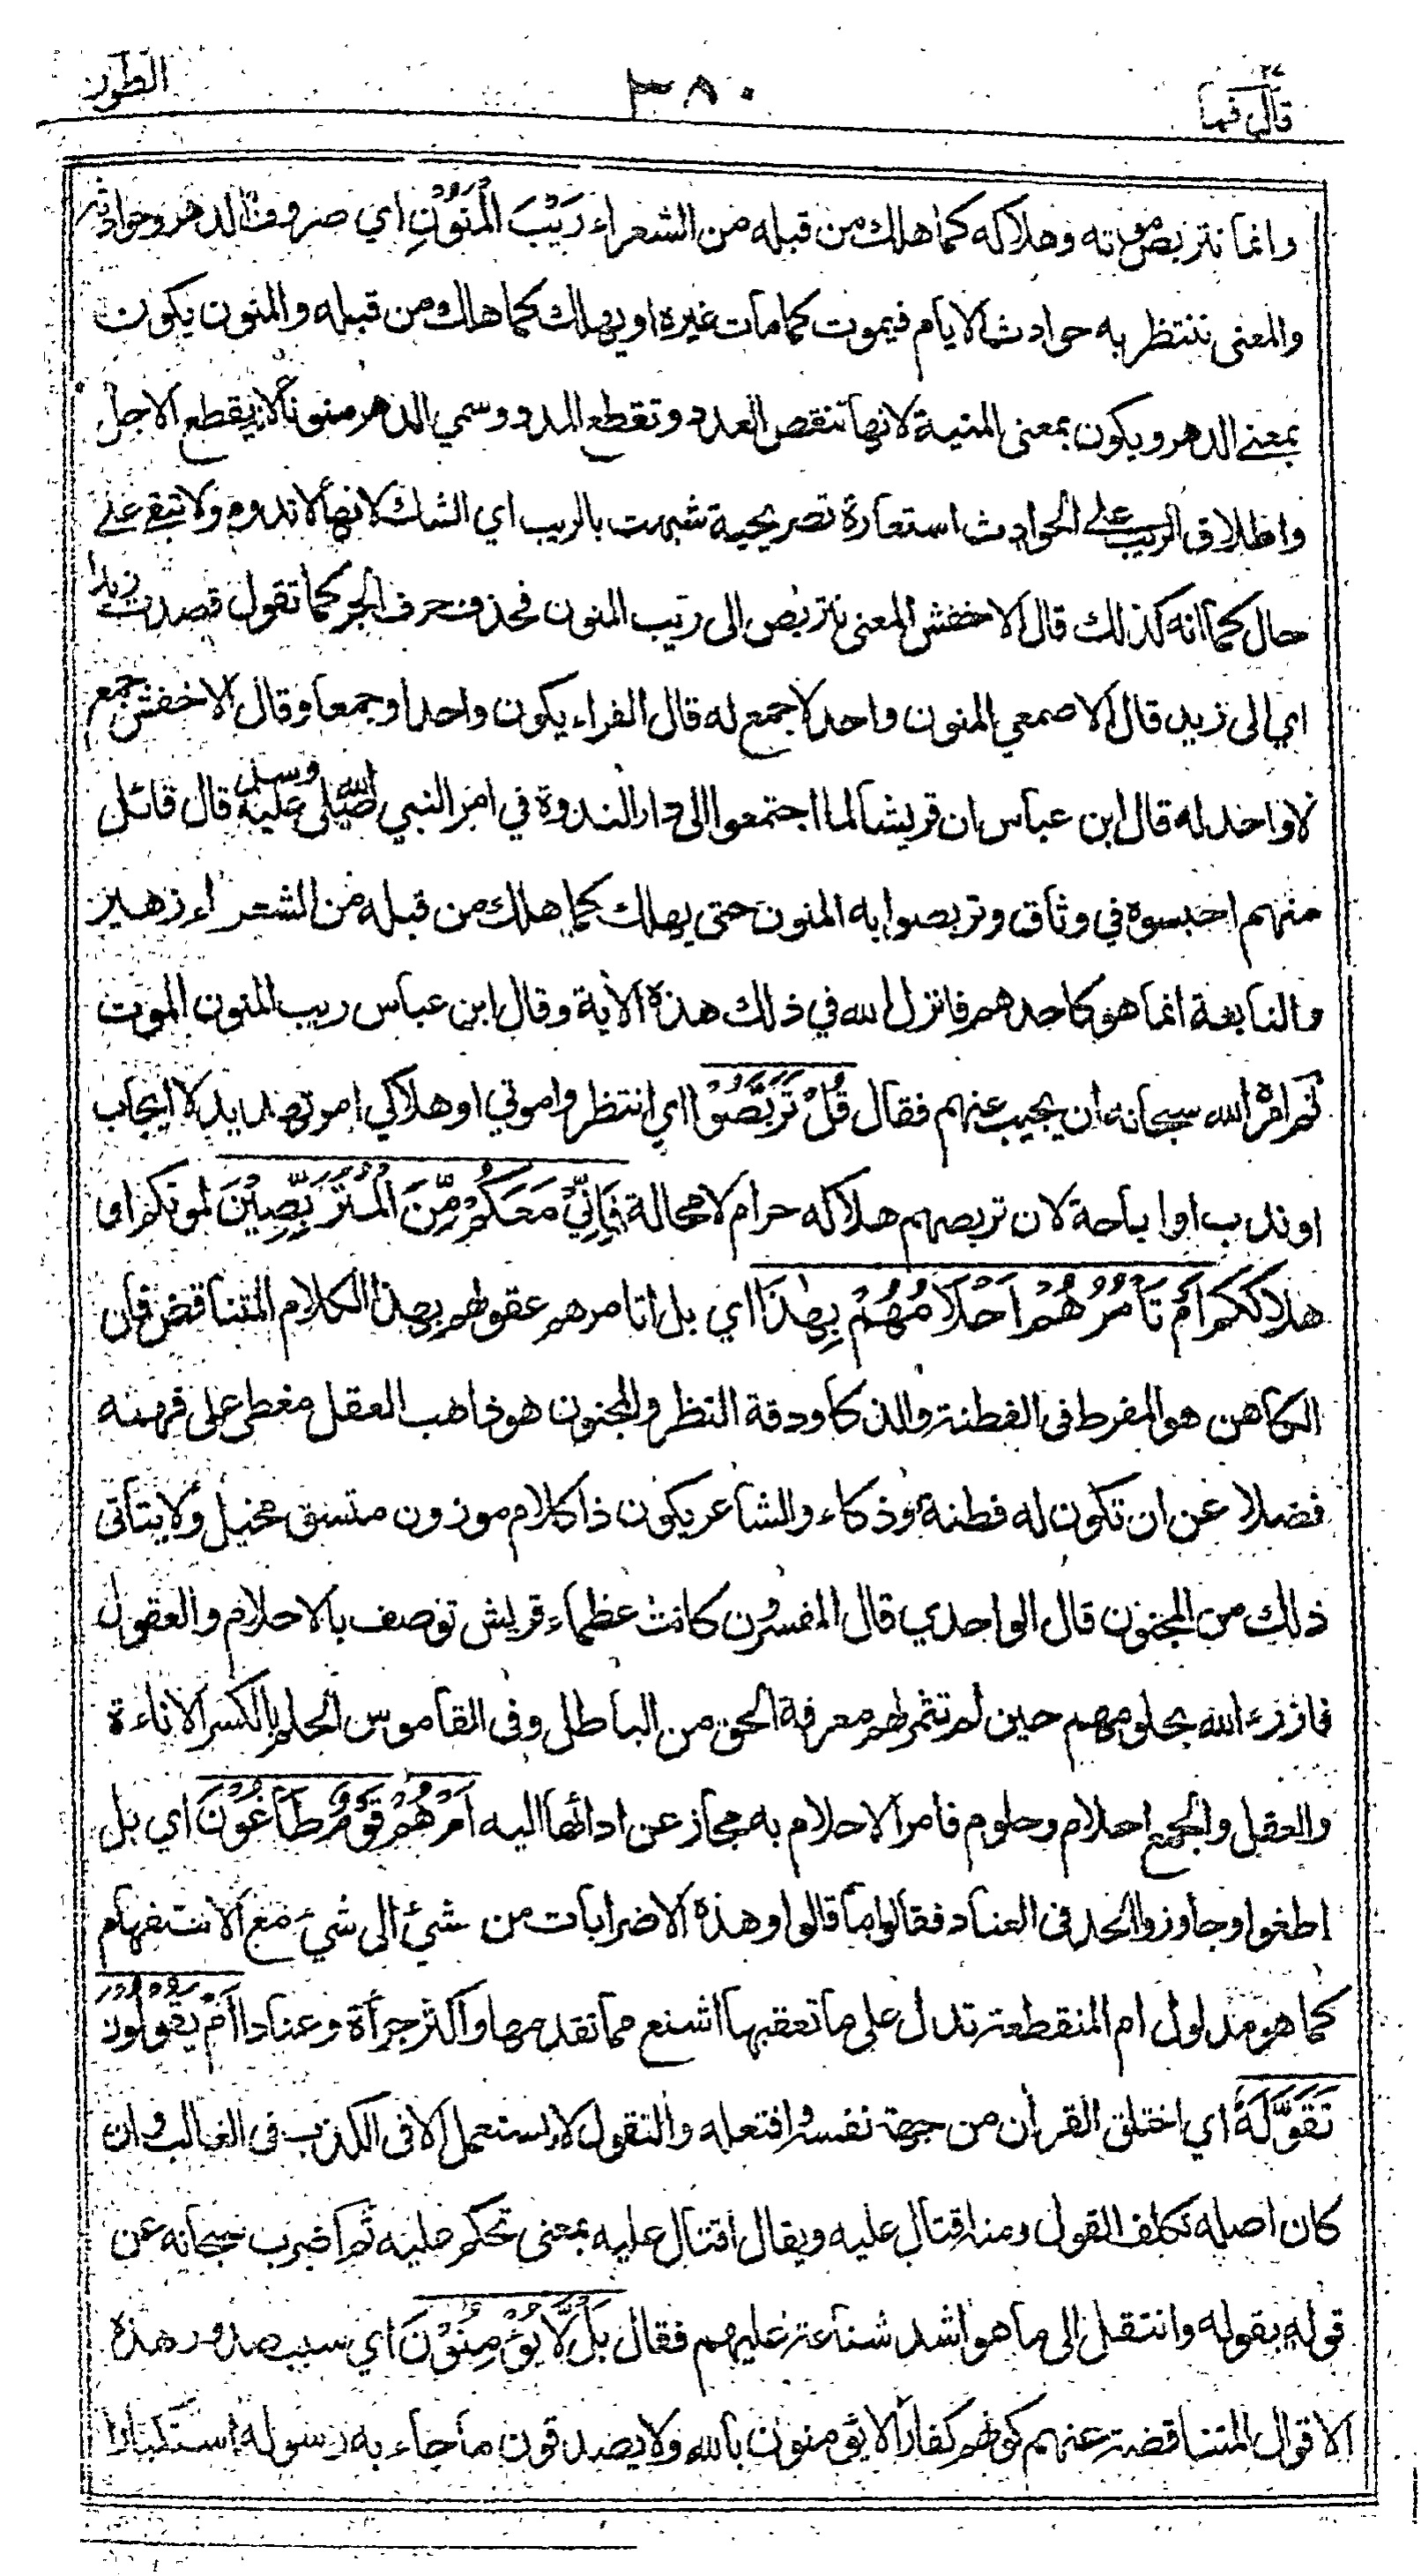 قال فما ٢٧
٣٨٠
الطور
وانما نتربص موته وهلاكه كما هلك من قبله من الشعراء رَيْبَ الْمَنُوْنِ اي صروف الدهر وحوادثه
والمعنى ننتظر به حوادث الايام فيموت كما مات غيره او يهلك كما هلك من قبله والمنون يكون
بمعنى الدهر ويكون بمعنى المنية لانها تنقص العدد وتقطع المدد وسمي الدهر منونا لانه يقطع الاجل
واطلاق الريب على الحوادث استعارة تصريحية شبهت بالريب اي الشك لانها لا تدوم ولا تبقى على
حال كما انه كذلك قال الاخفش المعنى نتربص الى ريب المنون فحذف حرف الجر كما تقول قصدت زيدا
اي الى زيد قال الاصمعي المنون واحد لا جمع له قال الفراء يكون واحدا وجمعا وقال الاخفش جمع
لا واحد له قال ابن عباس ان قريشا لما اجتمعوا الى دار الندوة في امر النبي صلى الله عليه وسلم قال قائل
منهم احبسوه في وثاق وتربصوا به المنون حتى يهلك كما هلك من قبله من الشعراء زهير
والنابغة انما هو كاحدهم فانزل الله في ذلك هذه الاية وقال ابن عباس ريب المنون الموت
ثم امره الله سبحانه ان يجيب عنهم فقال قُلْ تَرَبَّصُوْا اي انتظروا موتي او هلاكي امر تهديد لا ايجاب
او ندب او اباحة لان تربصهم هلاكه حرام لا محالة فَاِنِّيْ مَعَكُمْ مِّنَ الْمُتَرَبِّصِيْنَ لموتكم او
هلاككم اَمْ تَأْمُرُهُمْ اَحْلَامُهُمْ بِهٰذَا اي بل اتامرهم عقولهم بهذا الكلام المتناقض فان
الكاهن هو المفرط في الفطنة والذكا ودقة النظر والمجنون هو ذاهب العقل مغطى على فهمه
فضلا عن ان تكون له فطنة وذكاء والشاعر يكون ذا كلام موزون متسق مخيل ولا يتأتى
ذلك من المجنون قال الواحدي قال المفسرون كانت عظماء قريش توصف بالاحلام والعقول
فازرء الله بحلومهم حين لم تثمر لهم معرفة الحق من الباطل وفي القاموس الحلم بالكسر الاناءة
والعقل والجمع احلام وحلوم فامر الاحلام به مجاز عن ادائها اليه اَمْ هُمْ قَوْمٌ طَاغُوْنَ اي بل
اطغوا وجاوزوا الحد في العناد فقالوا ما قالوا وهذه الاضرابات من شيئ الى شيئ مع الاستفهام
كما هو مدلول ام المنقطعة تدل على ما تعقبها اشنع مما تقدمها واكثر جرأة وعنادا اَمْ يَقُوْلُوْنَ
تَقَوَّلَهٗ اي اختلق القران من جهة نفسه وافتعله والتقول لا يستعمل الا في الكذب في الغالب وان
كان اصله تكلف القول ومنه اقتال عليه ويقال اقتال عليه بمعنى تحكم عليه ثم اضرب سبحانه عن
قوله بقوله وانتقل الى ما هو اشد شناعة عليهم فقال بَلْ لَّا يُؤْمِنُوْنَ اي سبب صدور هذه
الاقوال المتناقضة عنهم كونهم كفارا لا يؤمنون بالله ولا يصدقون ما جاء به رسوله استكبارا